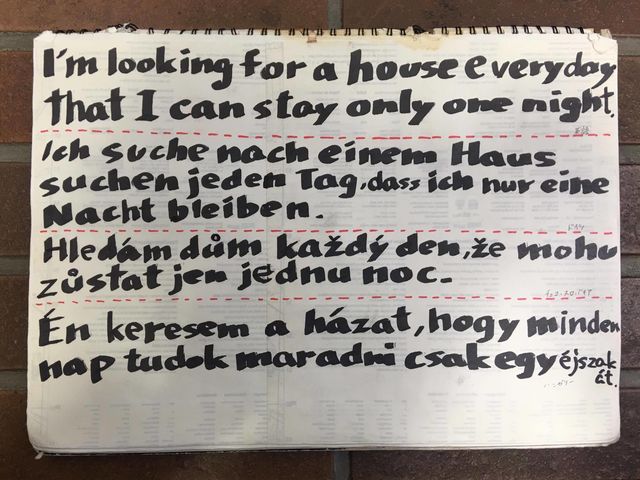 I'm looking for a house everyday
that I can stay only one night.
英語
Ich suche nach einem Haus
suchen jeden Tag, dass ich nur eine
Nacht bleiben.
ドイツ
Hledám dům každý den, že mohu
zůstat jen jednu noc.
チェコ・スロバキア
Én keresem a házat, hogy minden
nap tudok maradni csak egy éjszak
át.
ハンガリー